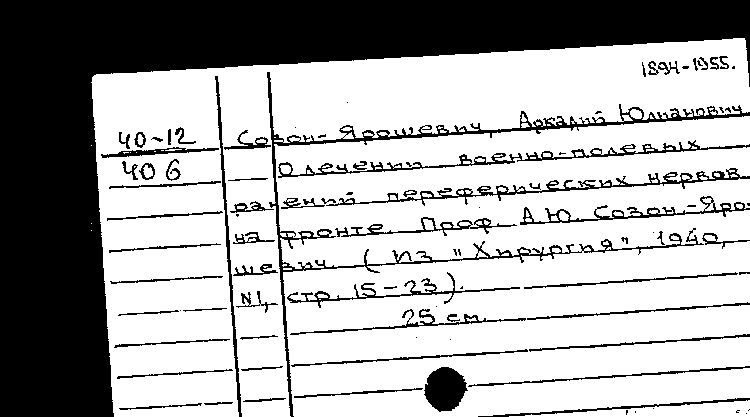 1894-1955.
40-12 Созон-Ярошевич, Аркадий Юлианович
406 О лечении военно-полевых
ранений переферических нервов
на фронте. Проф. А.Ю. Созон-Яро-
шевич. (Из "Хирургия", 1940,
N1, стр. 15-23).
25 см.